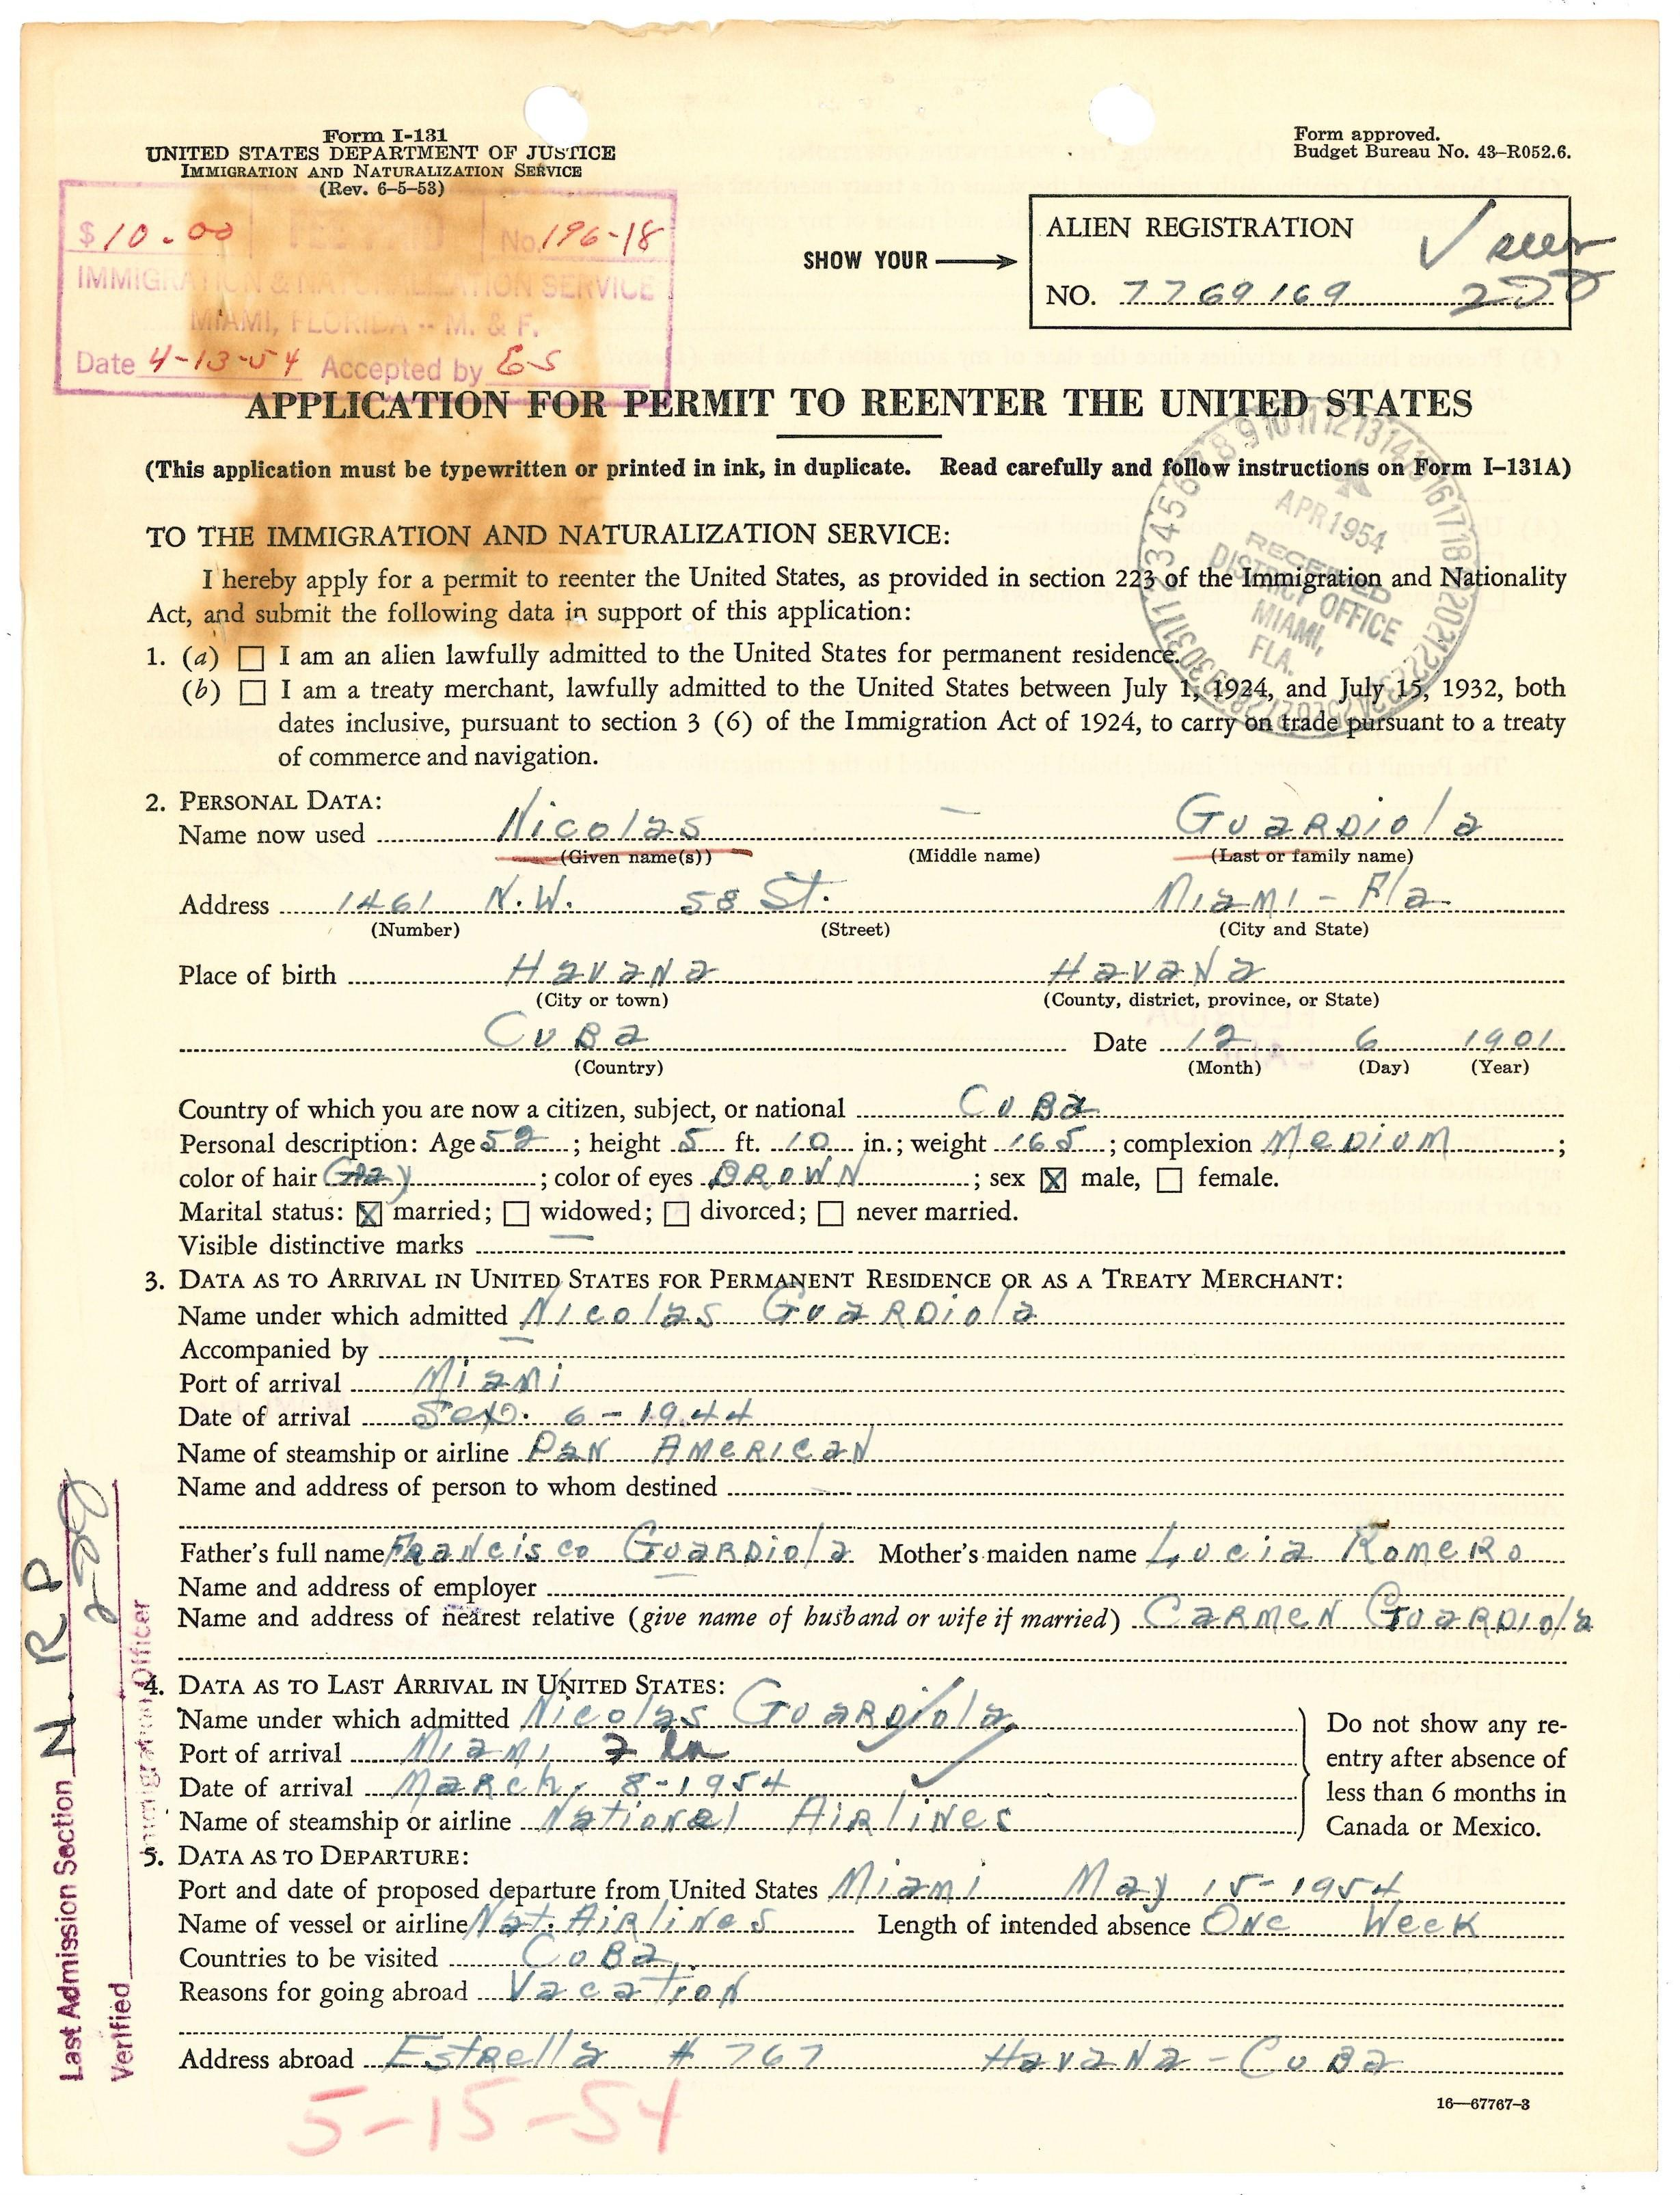 Form I-131
UNITED STATES DEPARTMENT OF JUSTICE
IMMIGRATION AND NATURALIZATION SERVICE
(Rev. 6-5-53)
Form approved.
Budget Bureau No. 43-R052.6.
$10.00 FEE PAID No. 196-18
IMMIGRATION & NATURALIZATION SERVICE
MIAMI, FLORIDA -- M. & F.
Date 4-13-54 Accepted by ES
SHOW YOUR
ALIEN REGISTRATION
NO. 7769169
APPLICATION FOR PERMIT TO REENTER THE UNITED STATES
(This application must be typewritten or printed in ink, in duplicate. Read carefully and follow instructions on Form I-131A)
APR 1954
RECEIVED
DISTRICT OFFICE
MIAMI,
FLA.
TO THE IMMIGRATION AND NATURALIZATION SERVICE:
I hereby apply for a permit to reenter the United States, as provided in section 223 of the Immigration and Nationality
Act, and submit the following data in support of this application:
1. (a) ☐ I am an alien lawfully admitted to the United States for permanent residence.
(b) ☐ I am a treaty merchant, lawfully admitted to the United States between July 1, 1924, and July 15, 1932, both
dates inclusive, pursuant to section 3 (6) of the Immigration Act of 1924, to carry on trade pursuant to a treaty
of commerce and navigation.
2. PERSONAL DATA:
Name now used Nicolas — Guardiola
(Given name(s)) (Middle name) (Last or family name)
Address 1461 N.W. 58 St. Miami - Fla
(Number) (Street) (City and State)
Place of birth Havana Havana
(City or town) (County, district, province, or State)
Cuba Date 12 6 1901
(Country) (Month) (Day) (Year)
Country of which you are now a citizen, subject, or national Cuba
Personal description: Age 52; height 5 ft. 10 in.; weight 165; complexion Medium;
color of hair Gray; color of eyes BROWN; sex ☒ male, ☐ female.
Marital status: ☒ married; ☐ widowed; ☐ divorced; ☐ never married.
Visible distinctive marks —
3. DATA AS TO ARRIVAL IN UNITED STATES FOR PERMANENT RESIDENCE OR AS A TREATY MERCHANT:
Name under which admitted Nicolas Guardiola
Accompanied by —
Port of arrival Miami
Date of arrival Sep. 6-1944
Name of steamship or airline Pan American
Name and address of person to whom destined —
Father's full name Francisco Guardiola Mother's maiden name Lucia Romero
Name and address of employer —
Name and address of nearest relative (give name of husband or wife if married) Carmen Guardiola
4. DATA AS TO LAST ARRIVAL IN UNITED STATES:
Name under which admitted Nicolas Guardiola
Port of arrival Miami
Date of arrival March, 8-1954
Name of steamship or airline National Airlines
Do not show any re-
entry after absence of
less than 6 months in
Canada or Mexico.
5. DATA AS TO DEPARTURE:
Port and date of proposed departure from United States Miami May 15-1954
Name of vessel or airline Nat. Airlines Length of intended absence One Week
Countries to be visited Cuba
Reasons for going abroad Vacation
Address abroad Estrella # 767 Havana - Cuba
5-15-54
16—67767-3
Last Admission Section N. R P
Verified
Immigration Officer